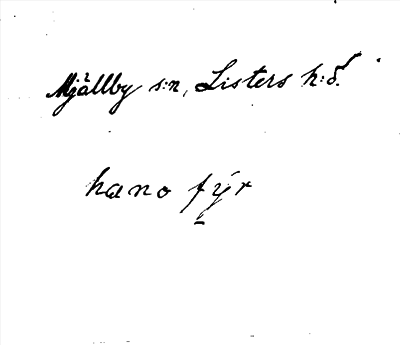 Mjällby s:n, Listers h:d.
hano fýr